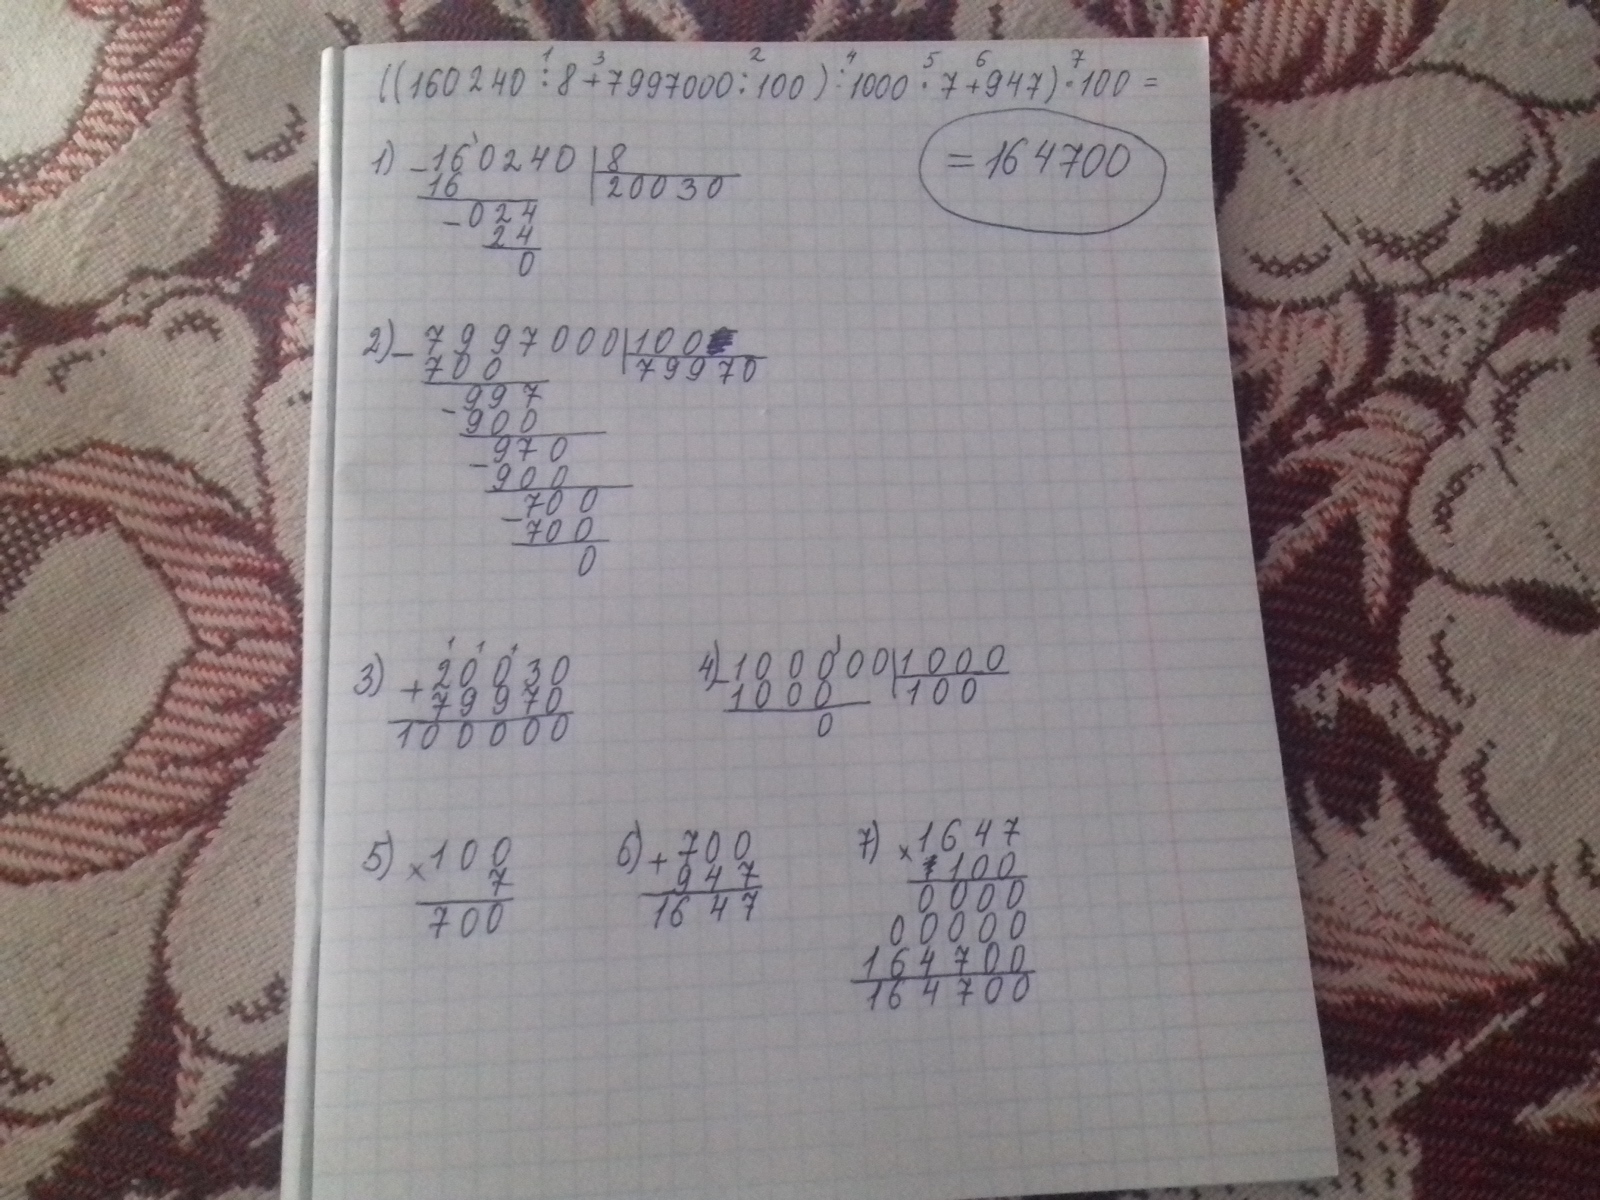 1 3 2 4 5 6 7
((160240:8+7997000:100):1000·7+947)·100=
=164700
1) -160240|8
16 20030
-024
24
0
2) -7997000|100
700 79970
-997
900
-970
900
-700
700
0
1 1 1
3) +20030
79970
100000
4) -100000|1000
1000 100
0
5) ×100
7
700
6) +700
947
1647
7) ×1647
100
0000
00000
164700
164700